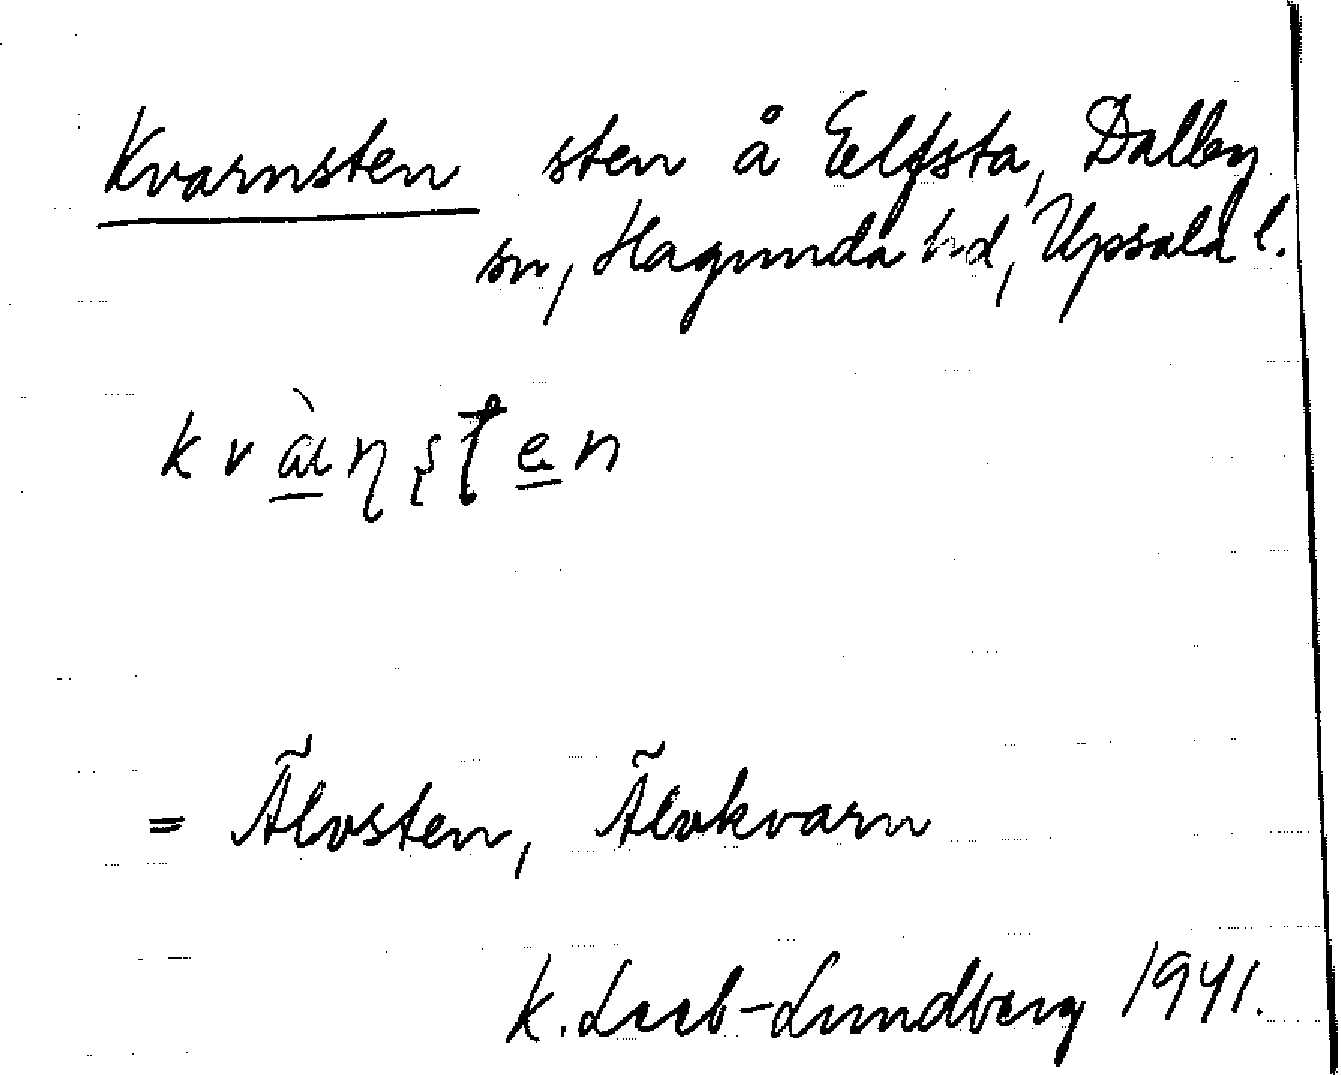 Kvarnsten sten å Eelfsta, Dalby
sn, Hagunda hd, Upsala l.
kvàṇṣten
= Älvsten, Älvkvarn
K. Leeb-Lundberg 1941.